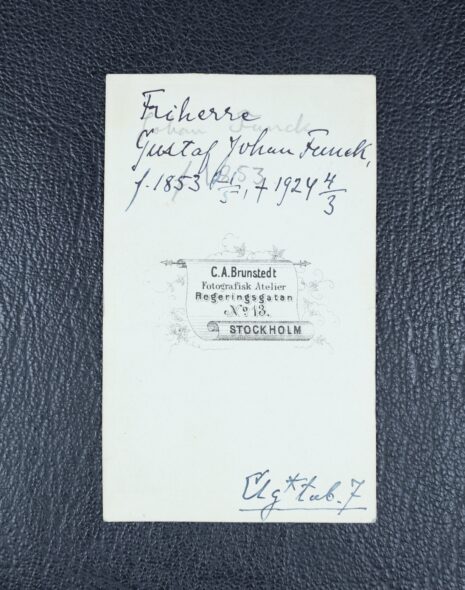 Friherre
Johan Funck
Gustaf Johan Funck,
f. 1853 21/5, † 1924 4/3
1853
C.A. Brunstedt
Fotografisk Atelier
Regeringsgatan
No 13.
STOCKHOLM
tab. 7